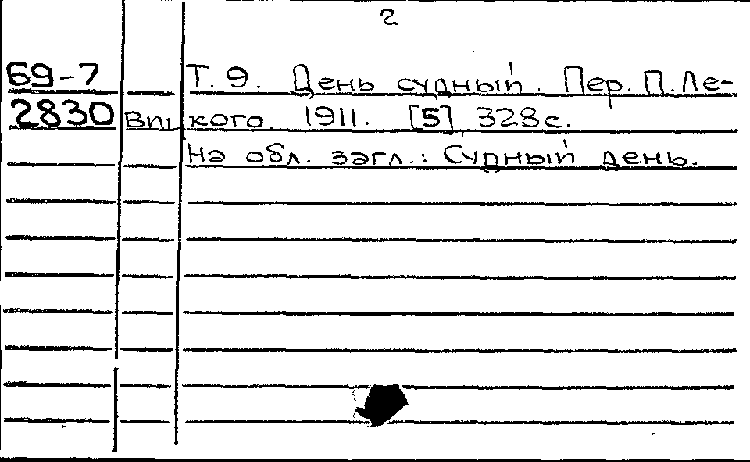 2
69-7 Т. 9. День судный. Пер. П. Ле-
2830 Впı кого. 1911. [5] 328 с.
На обл. загл.: Судный день.